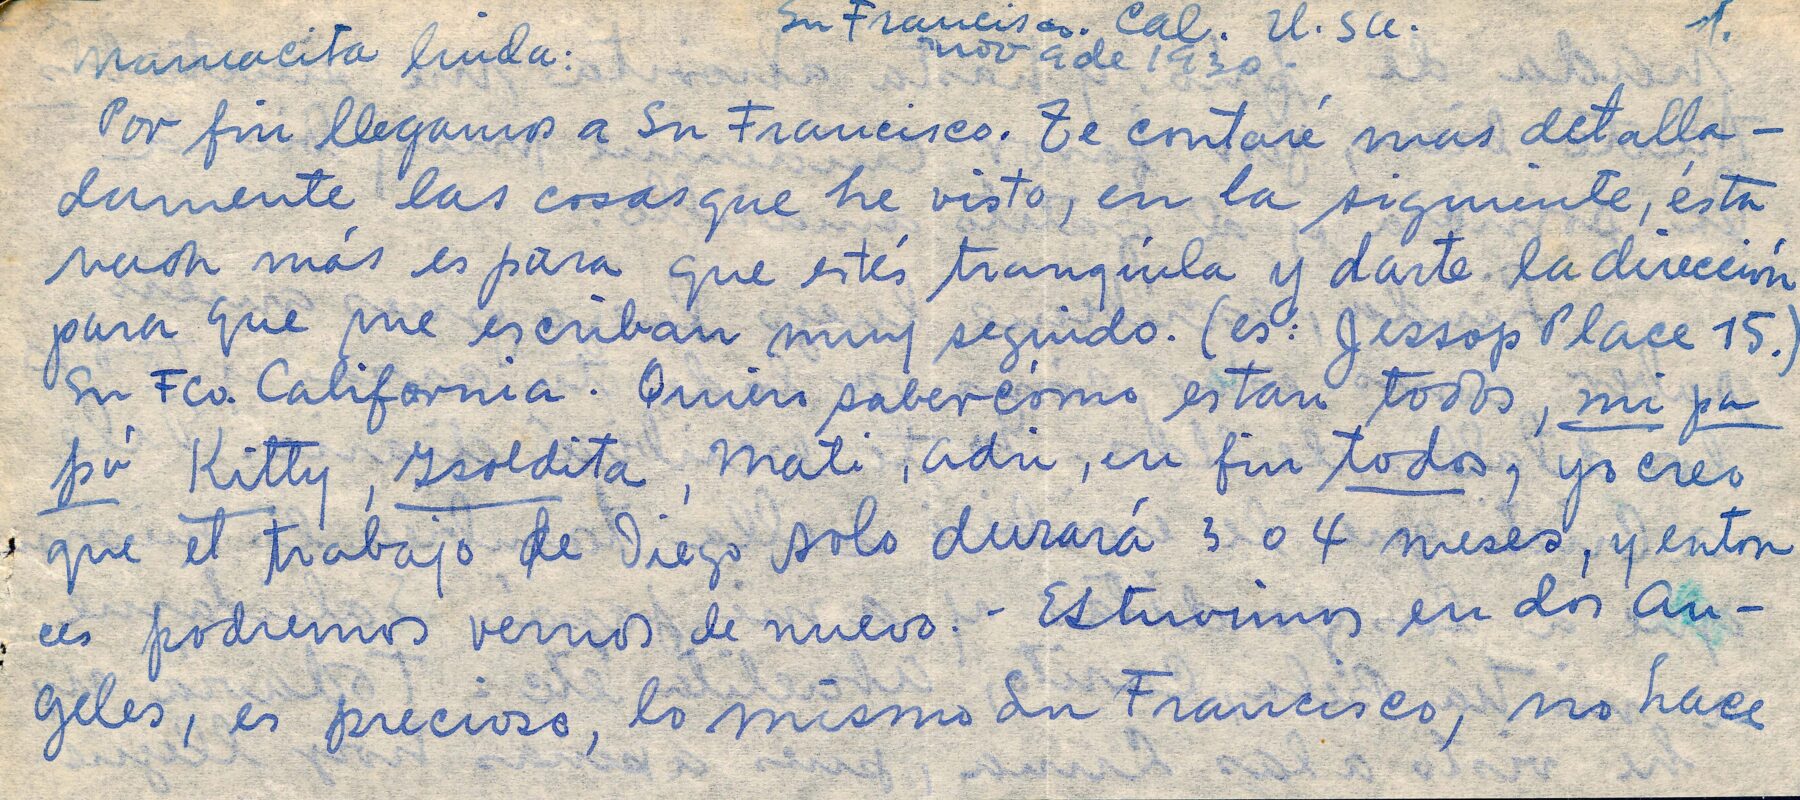 Sn Francisco. Cal. U.SA. 1.
nov 9 de 1930.
Mamacita linda:
Por fin llegamos a Sn Francisco. Te contaré mas detalla-
damente las cosas que he visto, en la siguiente, ésta
más es para que estés tranquila y darte la dirección
para que me escriban muy seguido. (es: Jessop Place 15.)
Sn Fco. California. Quien saber cómo estan todos, mi pa
pá Kitty, Isoldita, Mati, Adri, en fin todos, yo creo
que el trabajo de Diego solo durará 3 o 4 meses, y enton
ces podremos vernos de nuevo. - Estuvimos en dos An-
geles, es precioso, lo mismo Sn Francisco, no hace